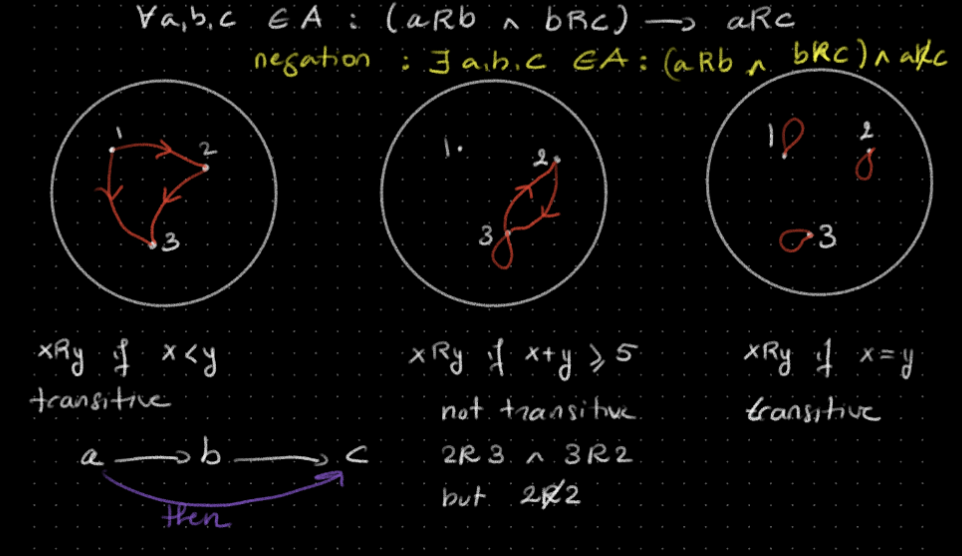 ∀a,b,c ∈ A : (aRb ∧ bRc) → aRc
negation : ∃ a,b,c ∈ A : (aRb ∧ bRc) ∧ aR̸c
1 2 3
1 2 3
1 2 3
xRy if x<y
transitive
a → b → c
then
xRy if x+y ⩾ 5
not transitive
2R3 ∧ 3R2
but 2R̸2
xRy if x=y
transitive